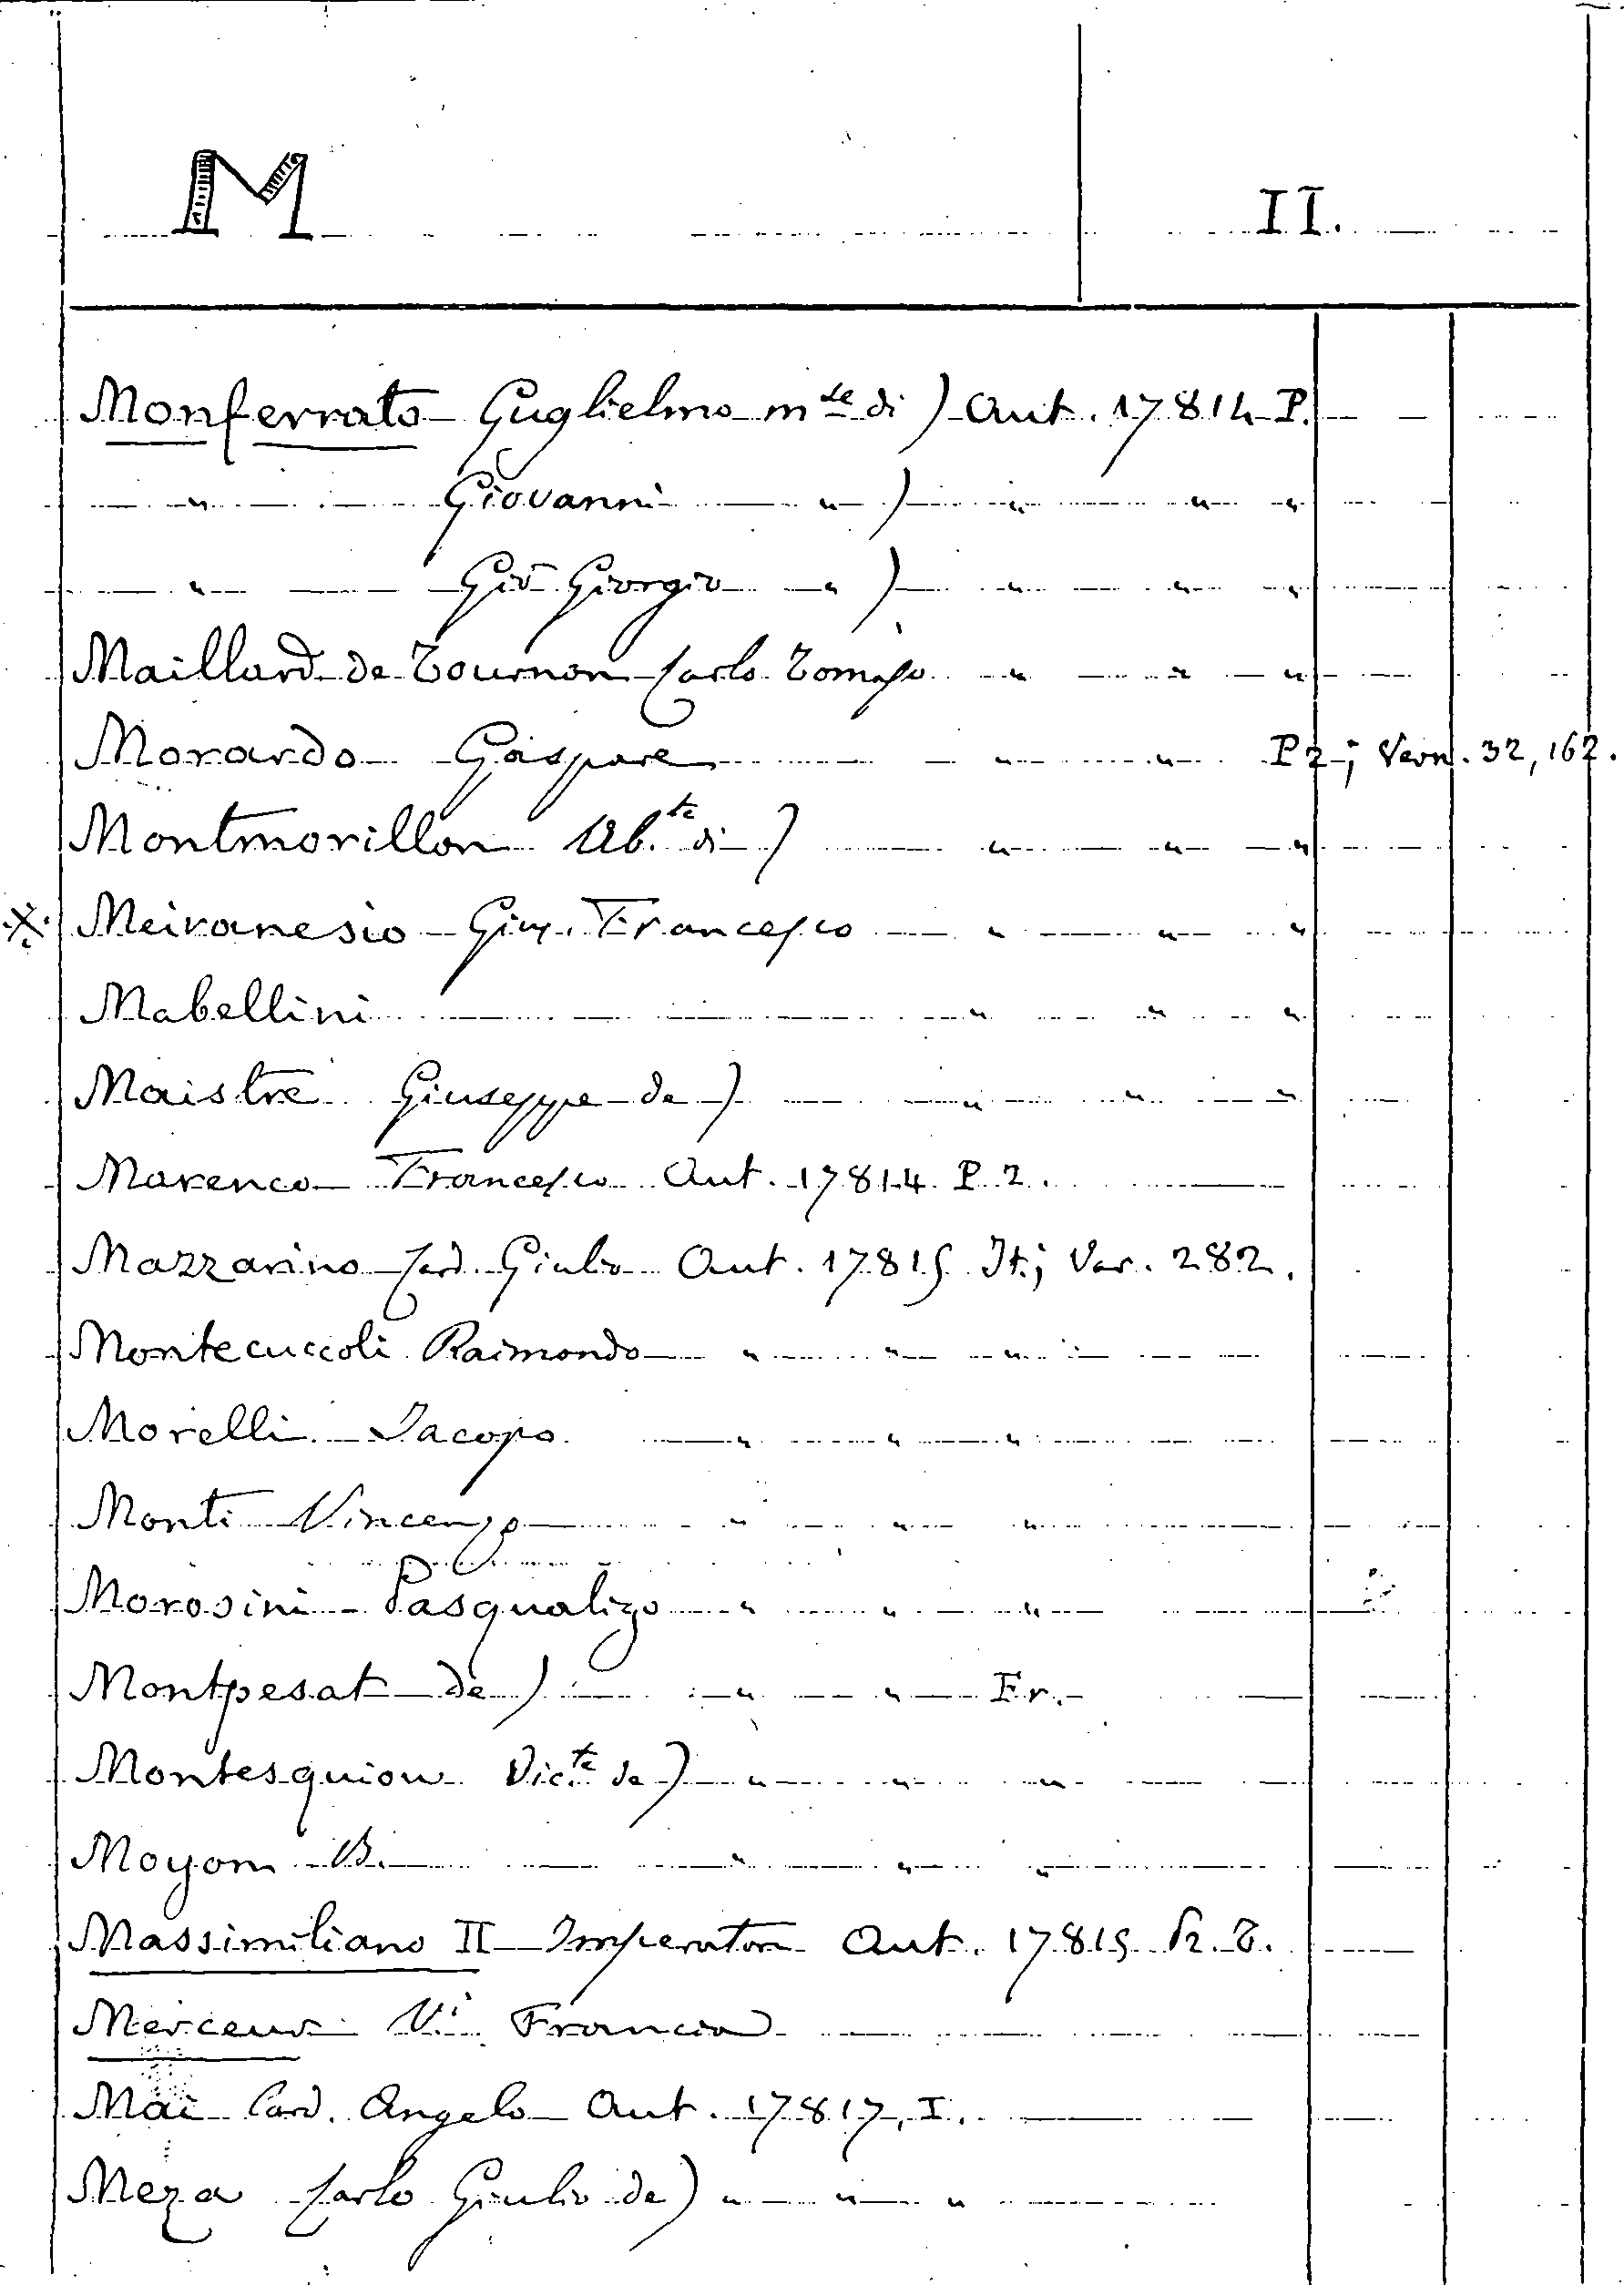 M II.
Monferrato Guglielmo m.se di ) Aut. 17814 P.
" Giovanni " ) " " "
" Gio Giorgio " ) " " "
Maillard de Tournon Carlo Tomaso " " "
Morardo Gaspare " " P2; Vern. 32, 162.
Montmorillon Ab.te di ) " " "
※ Meiranesio Gius. Francesco " " "
Mabellini " " "
Maistre Giuseppe de ) " " "
Marenco Francesco Aut. 17814 P 2.
Mazzarino Card. Giulio Aut. 17815 It.; Var. 282.
Montecuccoli Raimondo " " "
Morelli Jacopo " " "
Monti Vincenzo " " "
Morosini Pasqualigo " " "
Montpesat de ) " " Fr.
Montesquiou Vic.te de ) " " "
Moyon B. " " "
Massimiliano II Imperatore Aut. 17815
Merceur Vi Francia
Mai Card. Angelo Aut. 17817, I.
Meza Carlo Giulio de ) " " "